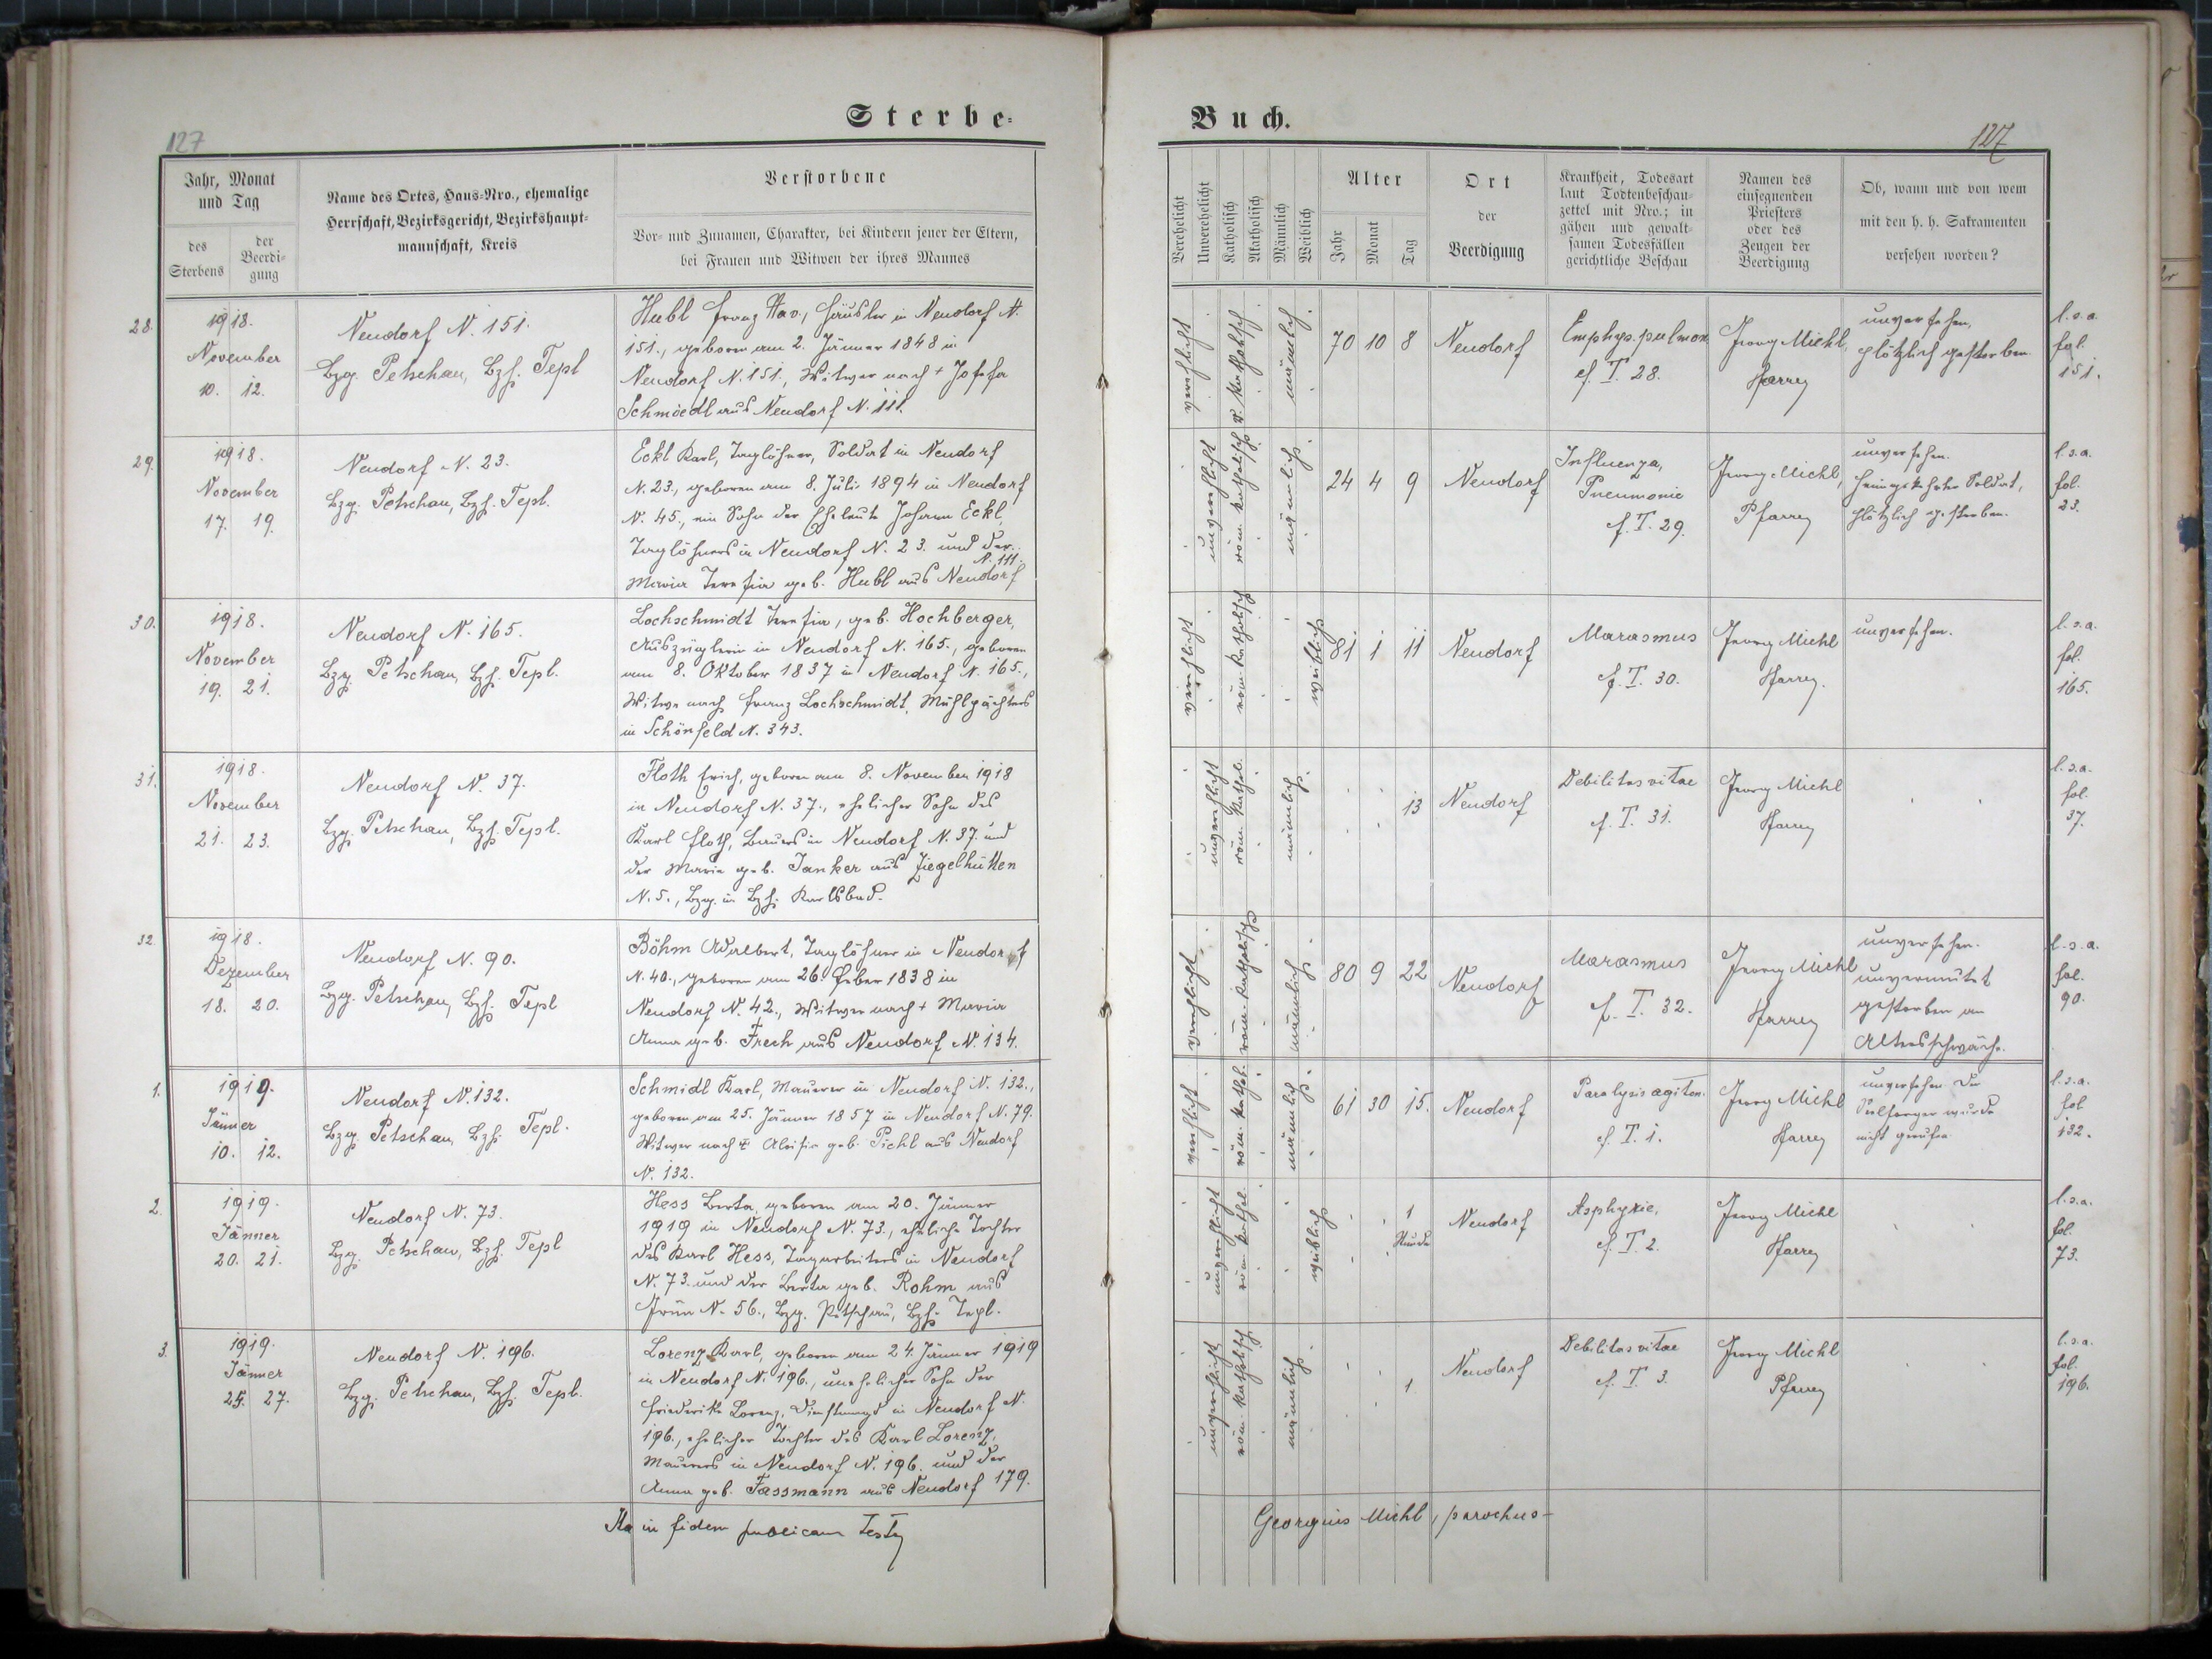 Sterbe-
Buch.
127
127
Jahr, Monat
und Tag
des
Sterbens
der
Beerdi-
gung
Name des Ortes, Haus-Nro., ehemalige
Herrschaft, Bezirksgericht, Bezirkshaupt-
mannschaft, Kreis
Verstorbene
Vor- und Zunamen, Charakter, bei Kindern jener der Eltern,
bei Frauen und Witwen der ihres Mannes
Verehelicht
Unverehelicht
Katholisch
Akatholisch
Männlich
Weiblich
Alter
Jahr
Monat
Tag
Ort
der
Beerdigung
Krankheit, Todesart
laut Todtenbeschau-
zettel mit Nro.; in
gähen und gewalt-
samen Todesfällen
gerichtliche Beschau
Namen des
einsegnenden
Priesters
oder des
Zeugen der
Beerdigung
Ob, wann und von wem
mit den h. h. Sakramenten
versehen worden?
28.
1918.
November
10. 12.
Neudorf N. 151.
Bzg. Petschau, Bzh. Tepl
Hubl Franz Xav., Häusler in Neudorf N.
151., geboren am 2. Jänner 1848 in
Neudorf N. 151., Witwer nach + Josefa
Schmiedl aus Neudorf N. 111.
verehelicht
r. katholisch
männlich
70 10 8
Neudorf
Emphys. pulmon.
cf. T. 28.
Georg Michl,
Pfarrer
unversehen,
plötzlich gestorben.
l. s. a.
fol.
151.
29.
1918.
November
17. 19.
Neudorf N. 23.
Bzg. Petschau, Bzh. Tepl.
Eckl Karl, Taglöhner, Soldat in Neudorf
N. 23., geboren am 8. Juli 1894 in Neudorf
N. 45., ein Sohn der Eheleute Johann Eckl,
Taglöhners in Neudorf N. 23. und der
Maria Theresia geb. Hubl aus Neudorf N. 111.
unverehelicht
röm. katholisch
männlich
24 4 9
Neudorf
Influenza,
Pneumonie
cf. T. 29.
Georg Michl,
Pfarrer
unversehen.
heimgekehrter Soldat,
plötzlich gestorben.
l. s. a.
fol.
23.
30.
1918.
November
19. 21.
Neudorf N. 165.
Bzg. Petschau, Bzh. Tepl.
Lochschmidt Theresia, geb. Hochberger,
Auszüglerin in Neudorf N. 165., geboren
am 8. Oktober 1837 in Neudorf N. 165.,
Witwe nach Franz Lochschmidt, Mühlpächters
in Schönfeld N. 343.
verehelicht
röm. katholisch
weiblich
81 1 11
Neudorf
Marasmus
cf. T. 30.
Georg Michl
Pfarrer.
unversehen.
l. s. a.
fol.
165.
31.
1918.
November
21. 23.
Neudorf N. 37.
Bzg. Petschau, Bzh. Tepl.
Floth Erich, geboren am 8. November 1918
in Neudorf N. 37., ehelicher Sohn des
Karl Floth, Bauers in Neudorf N. 37. und
der Maria geb. Janker aus Ziegelhütten
N. 5., Bzg. in Bzh. Karlsbad.
unverehelicht
röm. kathol.
männlich
13
Neudorf
Debilitas vitae
cf. T. 31.
Georg Michl
Pfarrer
l. s. a.
fol.
37.
32.
1918.
Dezember
18. 20.
Neudorf N. 90.
Bzg. Petschau, Bzh. Tepl
Böhm Adalbert, Taglöhner in Neudorf
N. 40., geboren am 26. Feber 1838 in
Neudorf N. 42., Witwer nach + Maria
Anna geb. Frech aus Neudorf N. 134.
verehelicht
röm. katholisch
männlich
80 9 22
Neudorf
Marasmus
cf. T. 32.
Georg Michl
Pfarrer
unversehen.
unvermutet
gestorben an
Altersschwäche.
l. s. a.
fol.
90.
1.
1919.
Jänner
10. 12.
Neudorf N. 132.
Bzg. Petschau, Bzh. Tepl.
Schmidl Karl, Maurer in Neudorf N. 132.,
geboren am 25. Jänner 1857 in Neudorf N. 79.
Witwer nach + Aloisia geb. Pichl aus Neudorf
N. 132.
verehelicht
röm. kathol.
männlich
61 30 15.
Neudorf
Paralysis agitan.
cf. T. 1.
Georg Michl
Pfarrer
unversehen. Der
Seelsorger wurde
nicht gerufen
l. s. a.
fol
132.
2.
1919.
Jänner
20. 21.
Neudorf N. 73.
Bzg. Petschau, Bzh. Tepl
Hess Berta, geboren am 20. Jänner
1919 in Neudorf N. 73., eheliche Tochter
des Karl Hess, Tagarbeiters in Neudorf
N. 73. und der Berta geb. Rohm aus
Grün N. 56., Bzg. Petschau, Bzh. Tepl.
unverehelicht
röm. kathol.
weiblich
1
Stunde
Neudorf
Asphyxie,
cf. T. 2.
Georg Michl
Pfarrer
l. s. a.
fol.
73.
3.
1919.
Jänner
25. 27.
Neudorf N. 196.
Bzg. Petschau, Bzh. Tepl.
Lorenz Karl, geboren am 24. Jänner 1919
in Neudorf N. 196., unehelicher Sohn der
Friederike Lorenz, Dienstmagd in Neudorf N.
196., ehelicher Tochter des Karl Lorenz,
Maurers in Neudorf N. 196. und der
Anna geb. Fassmann aus Neudorf 179.
unverehelicht
röm. katholisch
männlich
1.
Neudorf
Debilitas vitae
cf. T. 3.
Georg Michl
Pfarrer
l. s. a.
fol.
196.
Ita in fidem publicam testor
Georgius Michl, parochus